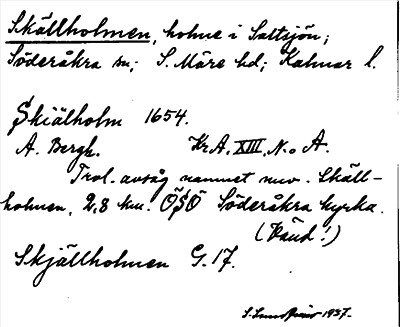 Skällholmen, holme i Saltsjön;
Söderåkra sn; S. Möre hd; Kalmar l.
Skiälholm 1654.
A. Bergh. Kr.A. XIII. N:o A.
Trol. avsåg namnet nuv. Skäll-
holmen, 2,8 km. ÖSÖ Söderåkra kyrka.
(Känd!)
Skjällholmen G. 17.
1937.